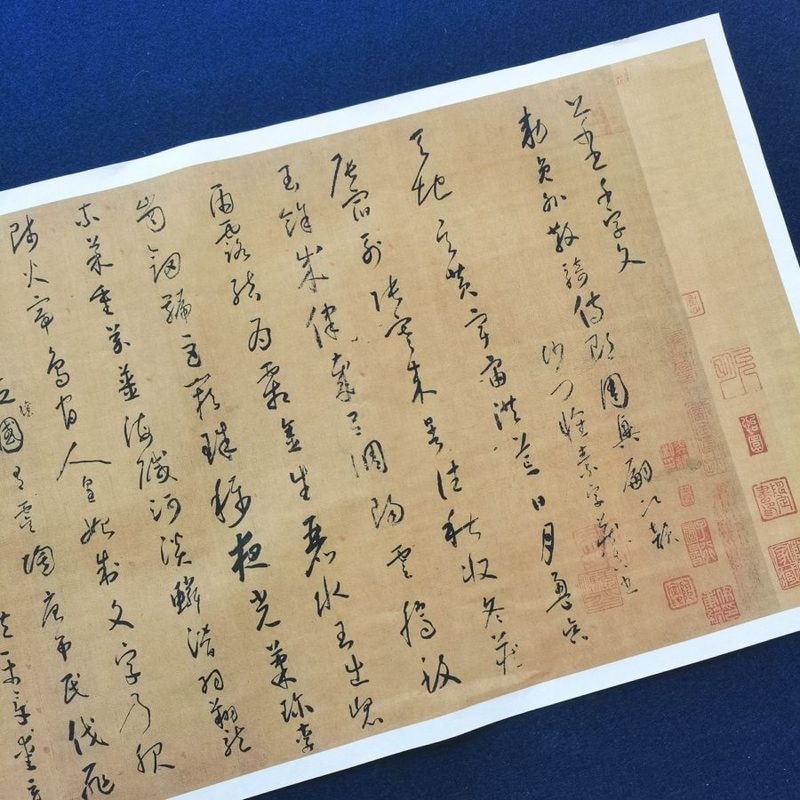 千字文
敕員外散騎侍郎周興嗣次韻
沙門懷素字藏真也
天地玄黃宇宙洪荒日月盈昃
辰宿列張寒來暑往秋收冬藏
閏餘成歲律呂調陽雲騰致
雨露結為霜金生麗水玉出崑
崗劍號巨闕珠稱夜光菓珍李
柰菜重芥薑海鹹河淡鱗潛羽翔龍
師火帝鳥官人皇始制文字乃服
位讓國有虞陶唐弔民伐罪
平章愛育